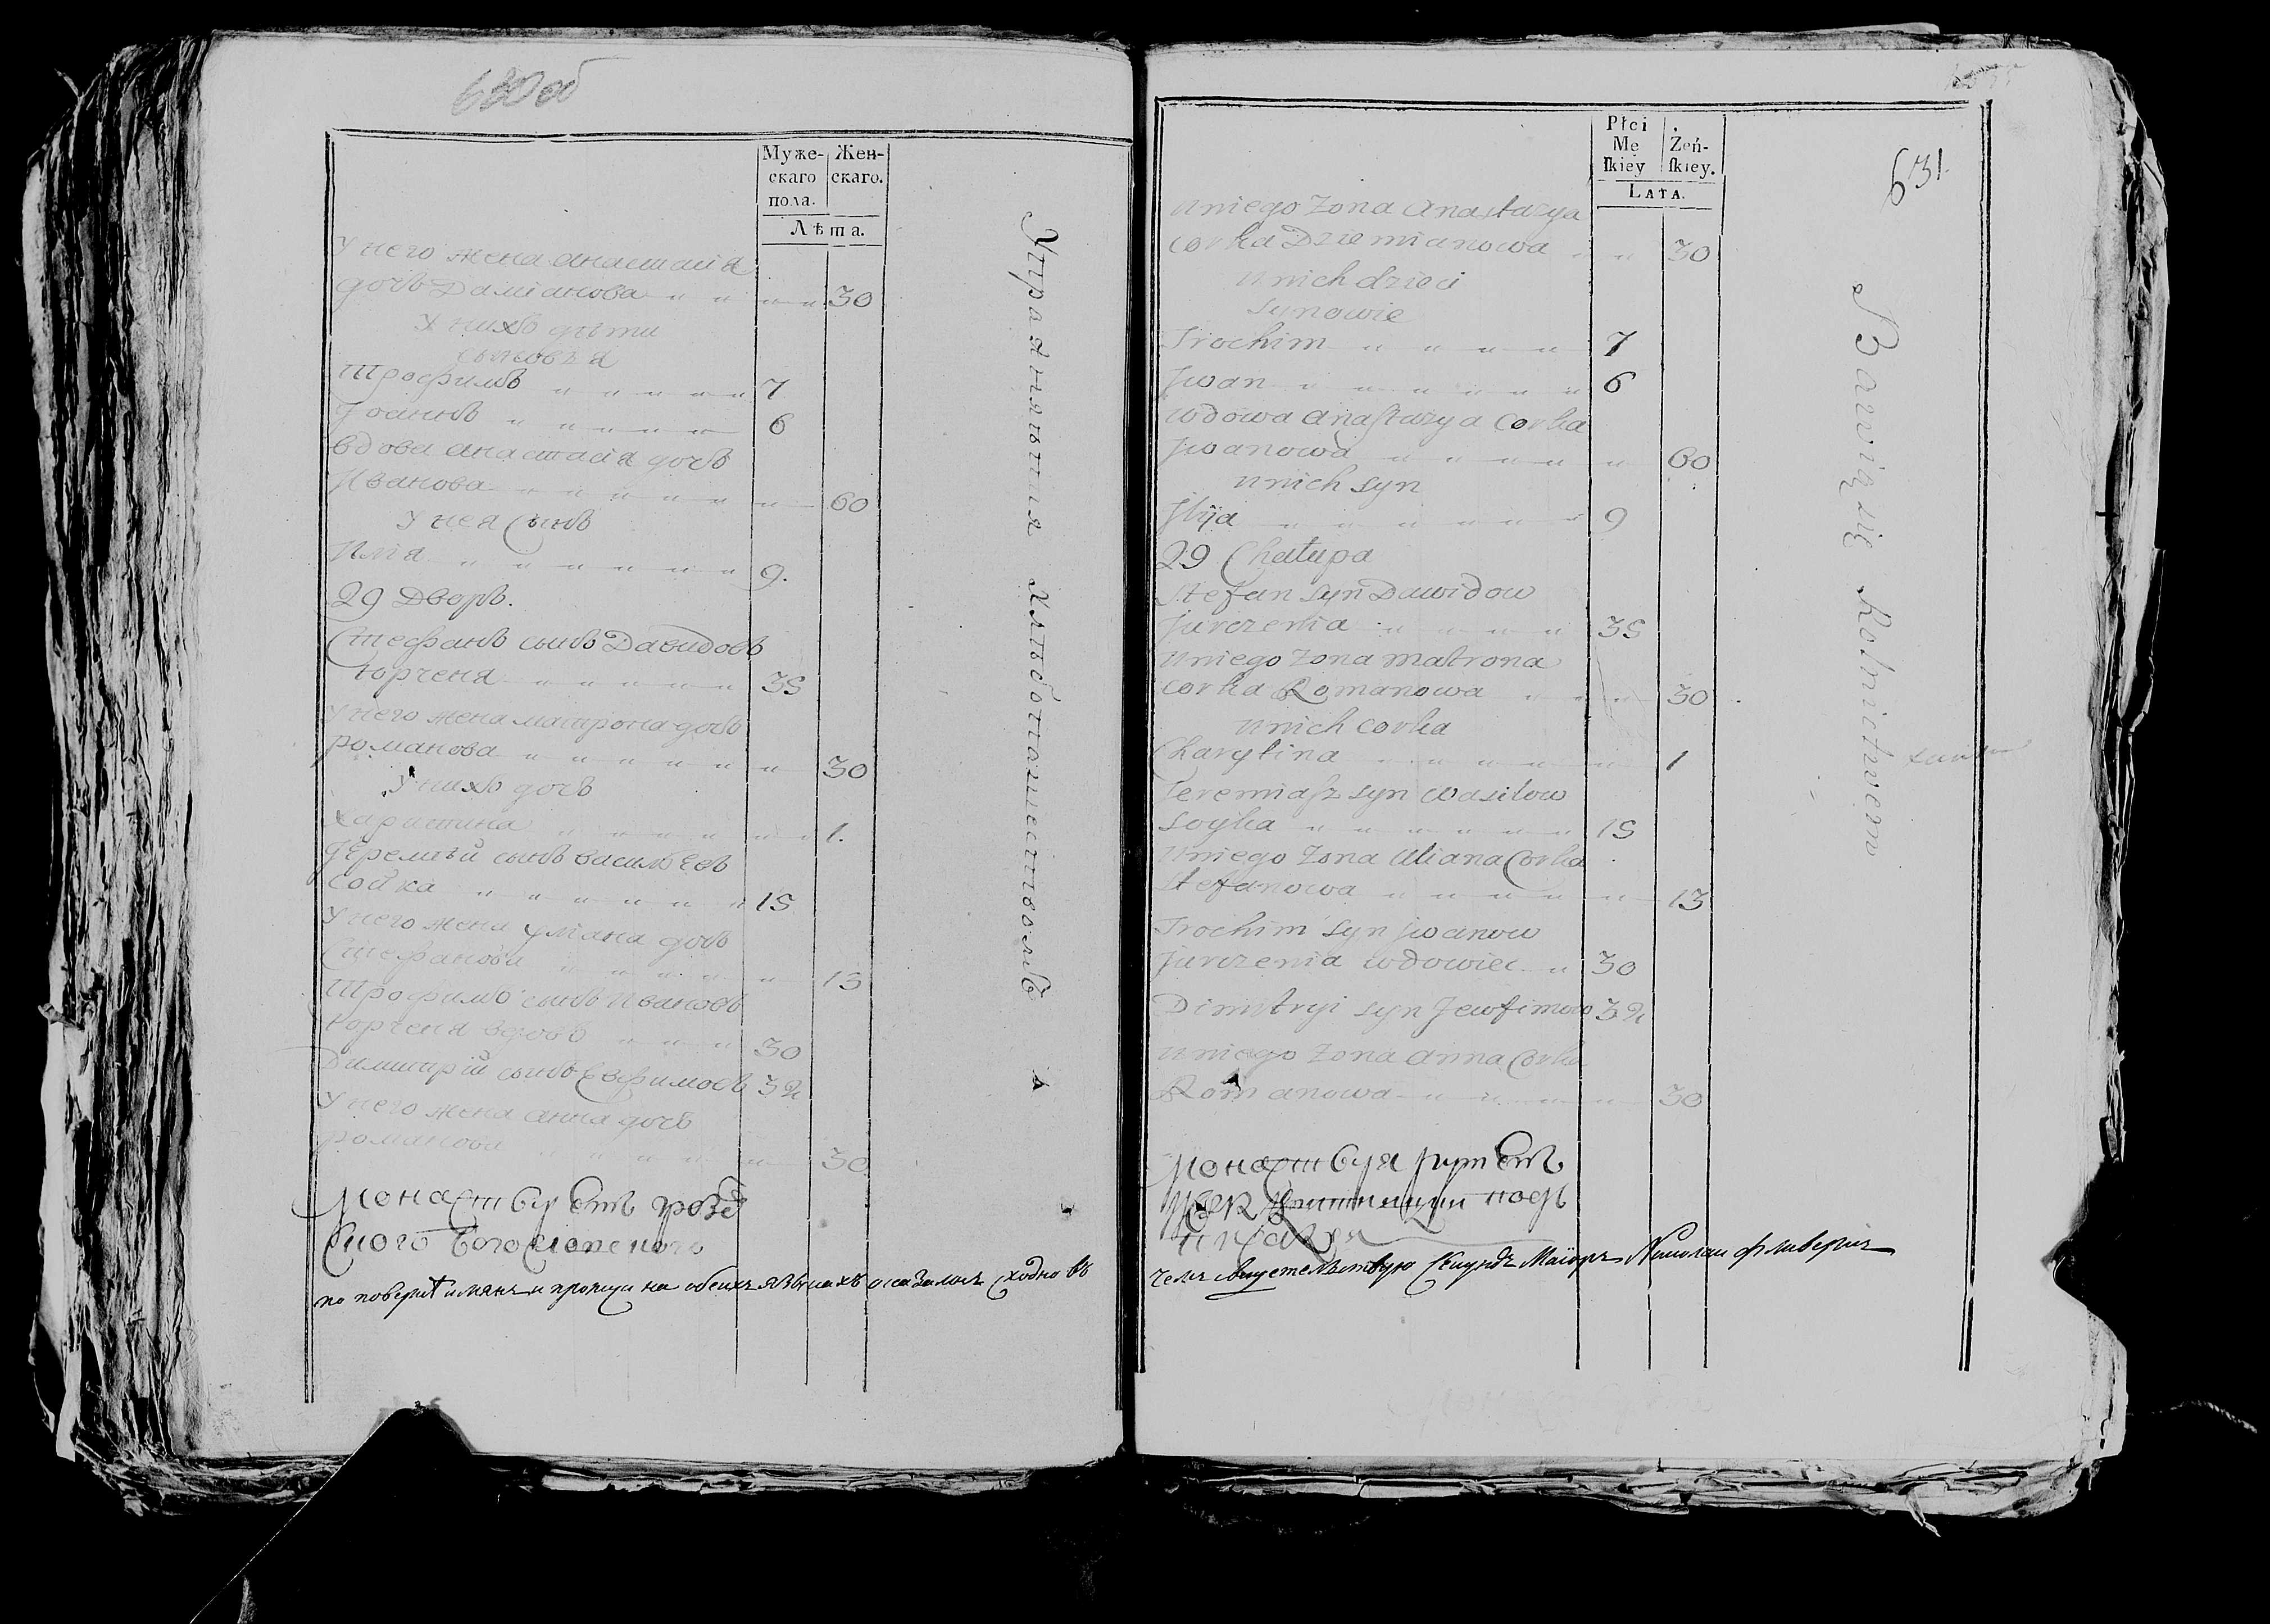 630 об
Муже-
скаго
пола.
Жен-
скаго.
Лѣта.
У него жена анастасїя
дочь Дамїанова 30
У нихъ дѣти
сыновья
Трофимъ 7
Іоаннъ 6
вдова анастасїя дочь
Иванова 60
У нея Сынъ
Илїя 9.
29 Дворъ.
Стефанъ сынъ Давидовъ
юрченя 35
У него жена матрона дочь
романова 30
У нихъ дочь
харитина 1.
Іеремѣй сынъ васильевъ
сойка 15
У него жена улїана дочь
Стефанова 13
Трофимъ сынъ Ивановъ
юрченя вдовъ 30
Димитрїй сынъ Евфимовъ 32
У него жена анна дочь
романова 30
по поверкѣ имянъ и на обеихъ языкахъ оказалось сходно въ
Упражняются хлѣбопашествомъ
631.
Płci
Mę
ſkiey
Żeń-
ſkiey.
LATA.
U niego Zona Anastazya
corka Dziemianowa 30
U nich dzieci
synowie
Trochim 7
Jwan 6
Wdowa Anaſtazya Corka
Jwanowa 60
U nich syn
Jlija 9
29 Chałupa
Stefan syn Dawidow
Jurczenia 35
U niego Zona Matrona
corka Romanowa 30
U nich corka
Charytina 1
Jeremiaſz syn Wasilow
Soyka 15
U niego Zona Uliana Corka
Stefanowa 13
Trochim syn Jwanow
Jurczenia Wdowiec 30
Dimitryi syn Jewfimow 32
U niego Zona Anna Corka
Romanowa 30
чемъ свидетельствую Секундъ Маїоръ Николаи
Bawią się Rolnictwem